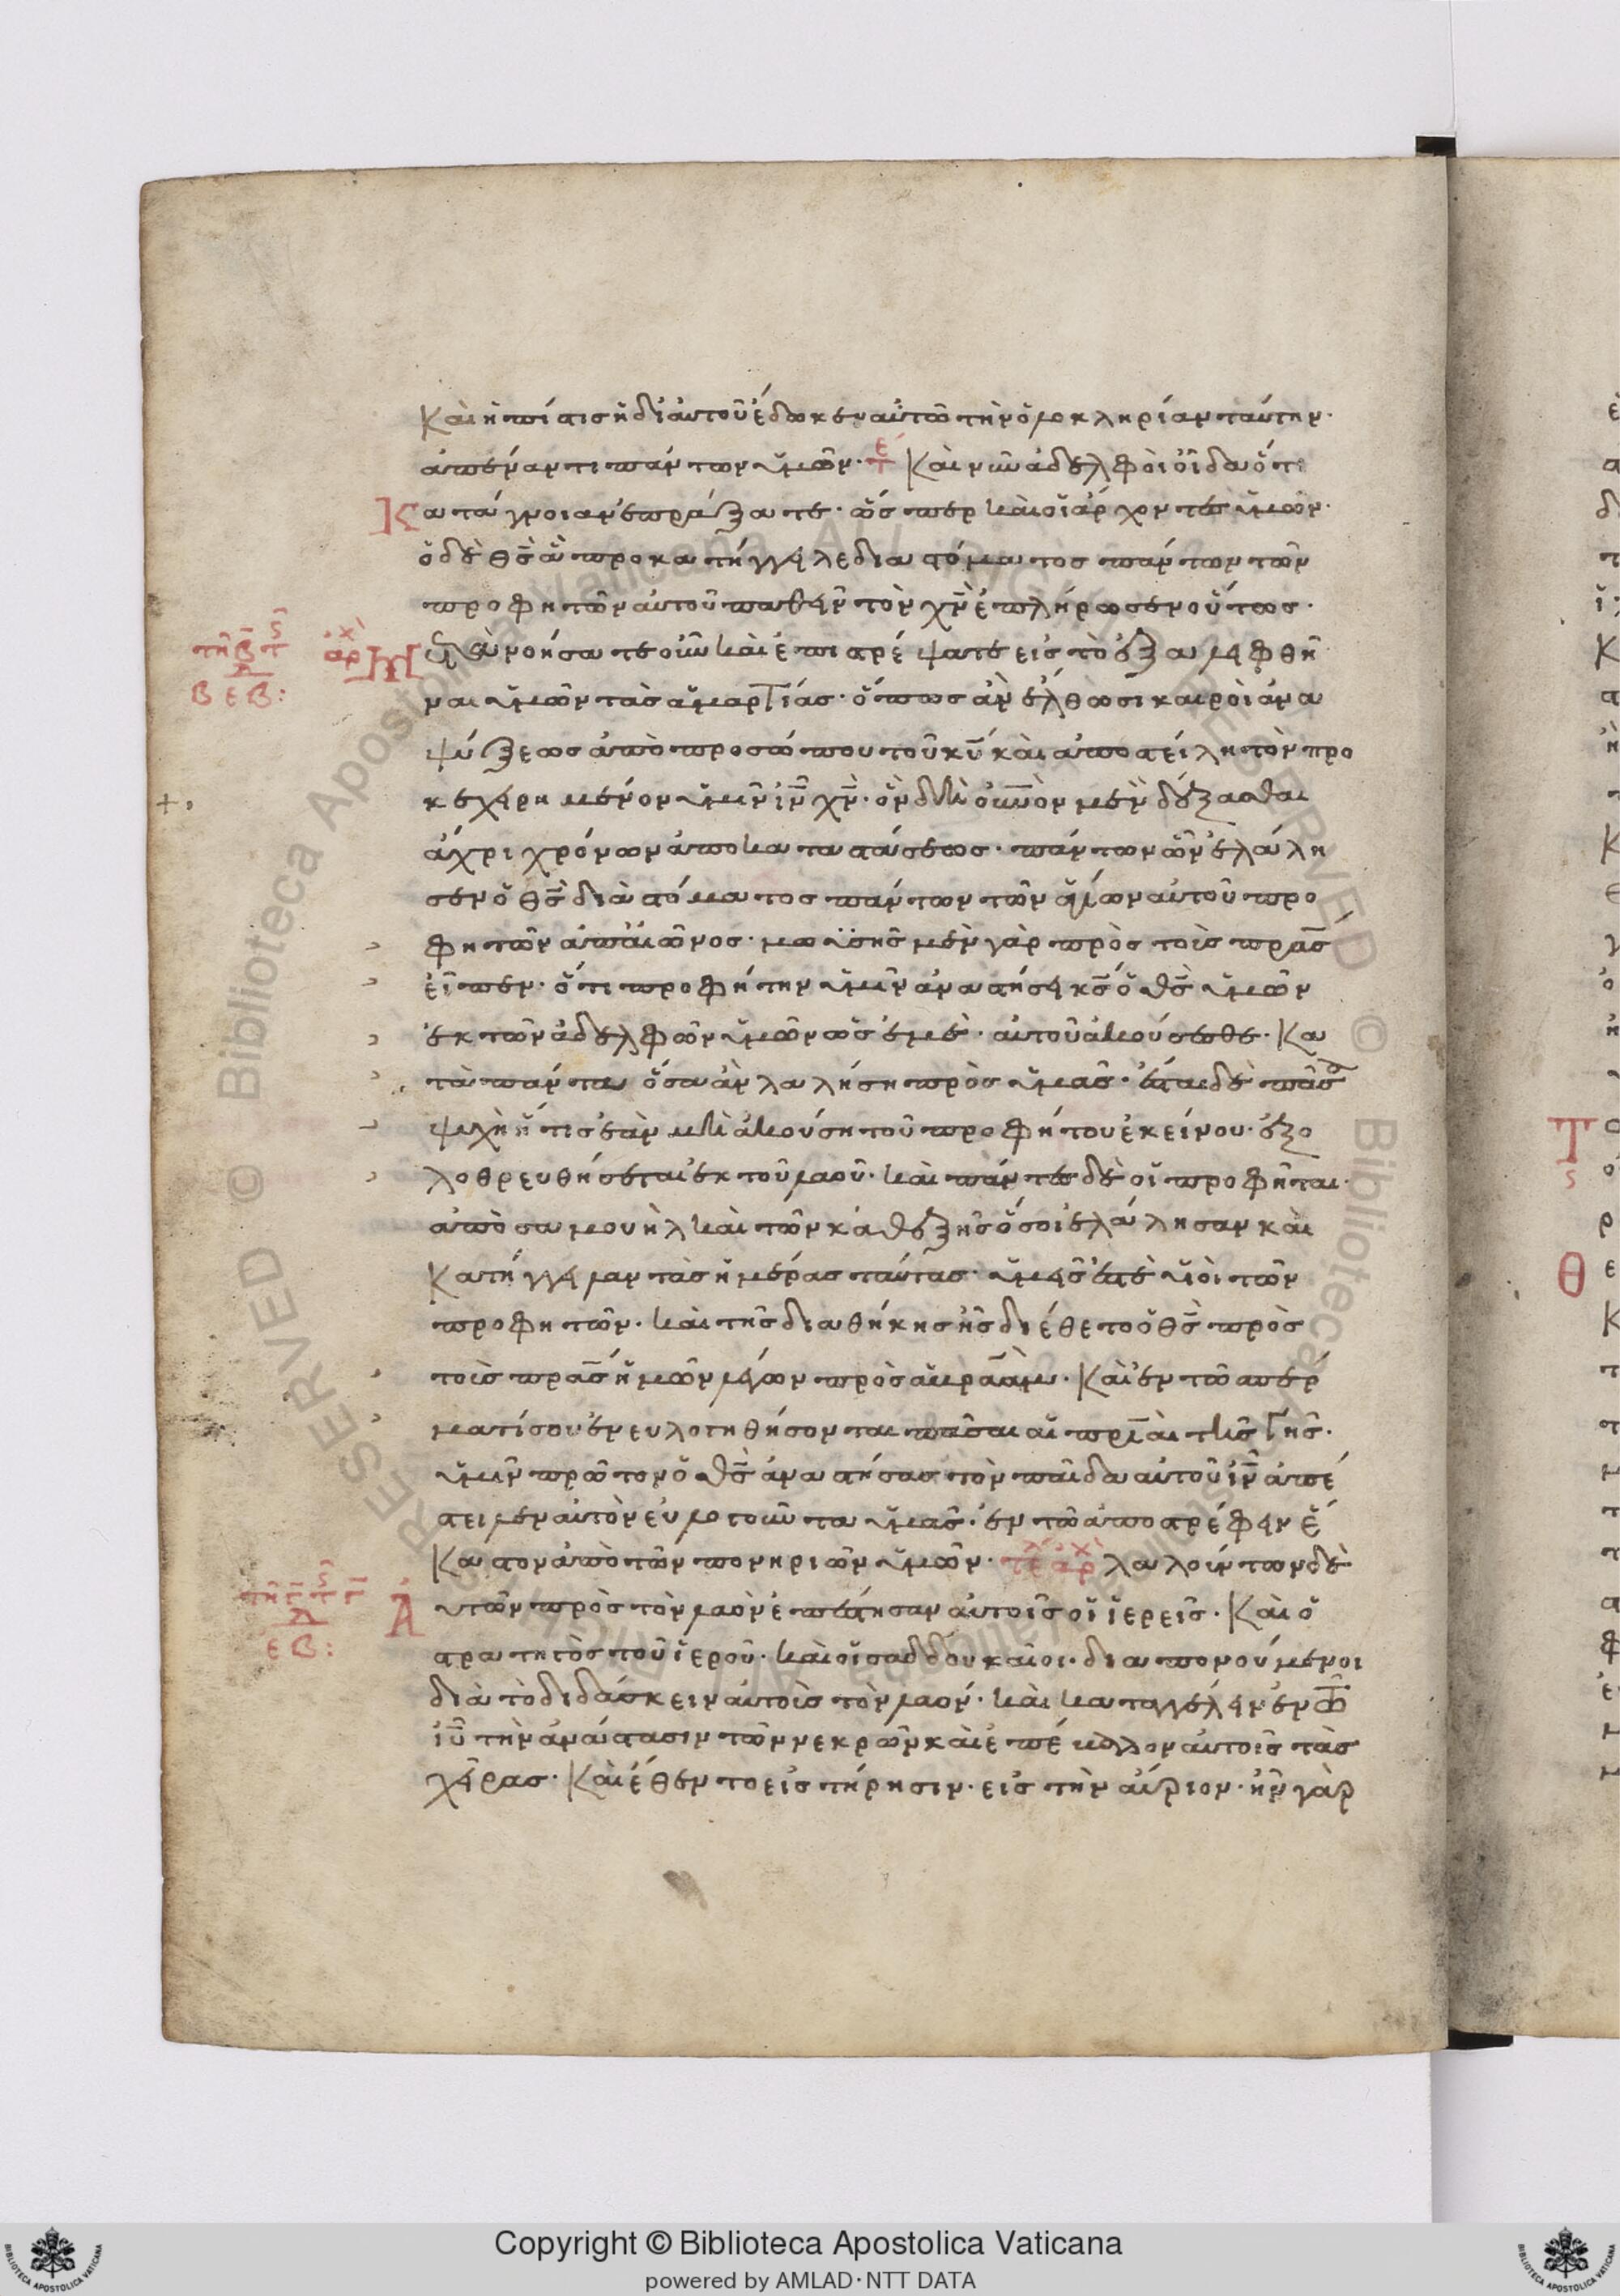 Καὶ ἡ πίστις ἡ δι αὐτοῦ ἔδωκεν αὐτῶ τὴν ὁλοκληρίαν ταύτην·
ἀπέναντι πάντων ὑμῶν· Καὶ νῦν ἀδελφοὶ οἶδα ὅτι
κατα ἄγνοιαν ἐπράξατε· ὥσπερ καὶ οἱ ἄρχοντες ὑμῶν·
ὁ δὲ θς ἃ προκατήγγειλε δια στόματος πάντων τῶν
προφητῶν αὐτοῦ παθεῖν τὸν χν ἐπλήρωσεν οὕτως·
Μετανοήσατε οὖν καὶ ἐπιστρέψατε εἰς τὸ ἐξαλειφθῆ
ναι ὑμῶν τὰς ἁμαρτίας· ὅπως ἂν ἔλθωσι καιροὶ ἀνα
ψύξεως ἀπὸ προσώπου τοῦ κυ καὶ ἀποστείλη τὸν προ
κεχειρημένον ὑμῖν ιν χν· ὃν δεῖ οὐνον μὲν δέξασθαι
ἄχρι χρόνων ἀποκαταστάσεως· πάντων ὧν ἐλάλη
σεν ὁ θς διὰ στόματος πάντων τῶν ἁγίων αὐτοῦ προ
φητῶν ἀπ αἰῶνος· μωϋσῆς μὲν γὰρ πρὸς τοὺς πρας
εἶπεν· ὅτι προφήτην ὑμῖν ἀναστήσει κς ὁ θς ὑμῶν
ἐκ τῶν ἀδελφῶν ὑμῶν ὡς ἐμὲ· αὐτοῦ ἀκούσεσθε· Κα
τὰ πάντα ὅσα ἂν λαλήση πρὸς ὑμᾶς· ἔσται δὲ πᾶσα
ψυχὴ ἥτις ἐὰν μὴ ἀκούση τοῦ προφήτου ἐκείνου· ἐξο
λοθρευθήσεται ἐκ τοῦ λαοῦ· καὶ πάντες δὲ οἱ προφῆται·
ἀπὸ σαμουὴλ καὶ τῶν καθεξῆς ὅσοι ἐλάλησαν καὶ
Κατήγγειλαν τὰς ἡμέρας ταύτας· ὑμεῖς ἐστὲ υἱοὶ τῶν
προφητῶν· καὶ τῆς διαθήκης ἧς διέθετο ὁ θς πρὸς
τοὺς πρας ἡμῶν λέγων πρὸς ἀβραάμ· Καὶ ἐν τῶ σπέρ
ματί σου ἐνευλογηθήσονται πᾶσαι αἱ πριαὶ τῆς Γῆς·
ὑμῖν πρῶτον ὁ θς ἀναστήσας τὸν παῖδα αὐτοῦ ιν ἀπέ
στειλεν αὐτὸν εὐλογοῦντα ὑμᾶς· ἐν τῶ ἀποστρέφειν ἕ
Καστον ἀπὸ τῶν πονηριῶν ὑμῶν· λαλούντων δὲ
Αὐτῶν πρὸς τὸν λαὸν ἐπέστησαν αὐτοῖς οἱ ἱερεῖς· Καὶ ὁ
στρατηγὸς τοῦ ἱεροῦ· καὶ οἱ σαδδουκαῖοι· διαπονούμενοι
διὰ τὸ διδάσκειν αὐτοὺς τὸν λαόν· καὶ καταγγέλειν ἐν τῶ
ιυ τὴν ἀνάστασιν τῶν νεκρῶν καὶ ἐπέβαλλον αὐτοῖς τὰς
χεῖρας· Καὶ ἔθεντο εἰς τήρησιν· εἰς τὴν αὔριον· ἦν γὰρ
Copyright © Biblioteca Apostolica Vaticana
powered by AMLAD·NTT DATA